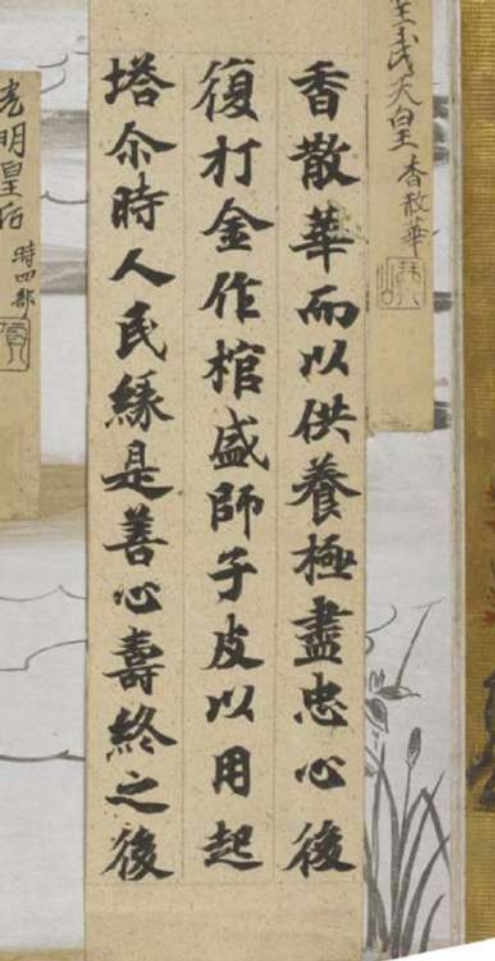 聖武天皇 香散華
香散華而以供養極盡忠心後
復打金作棺盛師子皮以用起
塔尒時人民緣是善心壽終之後
光明皇后 時四部